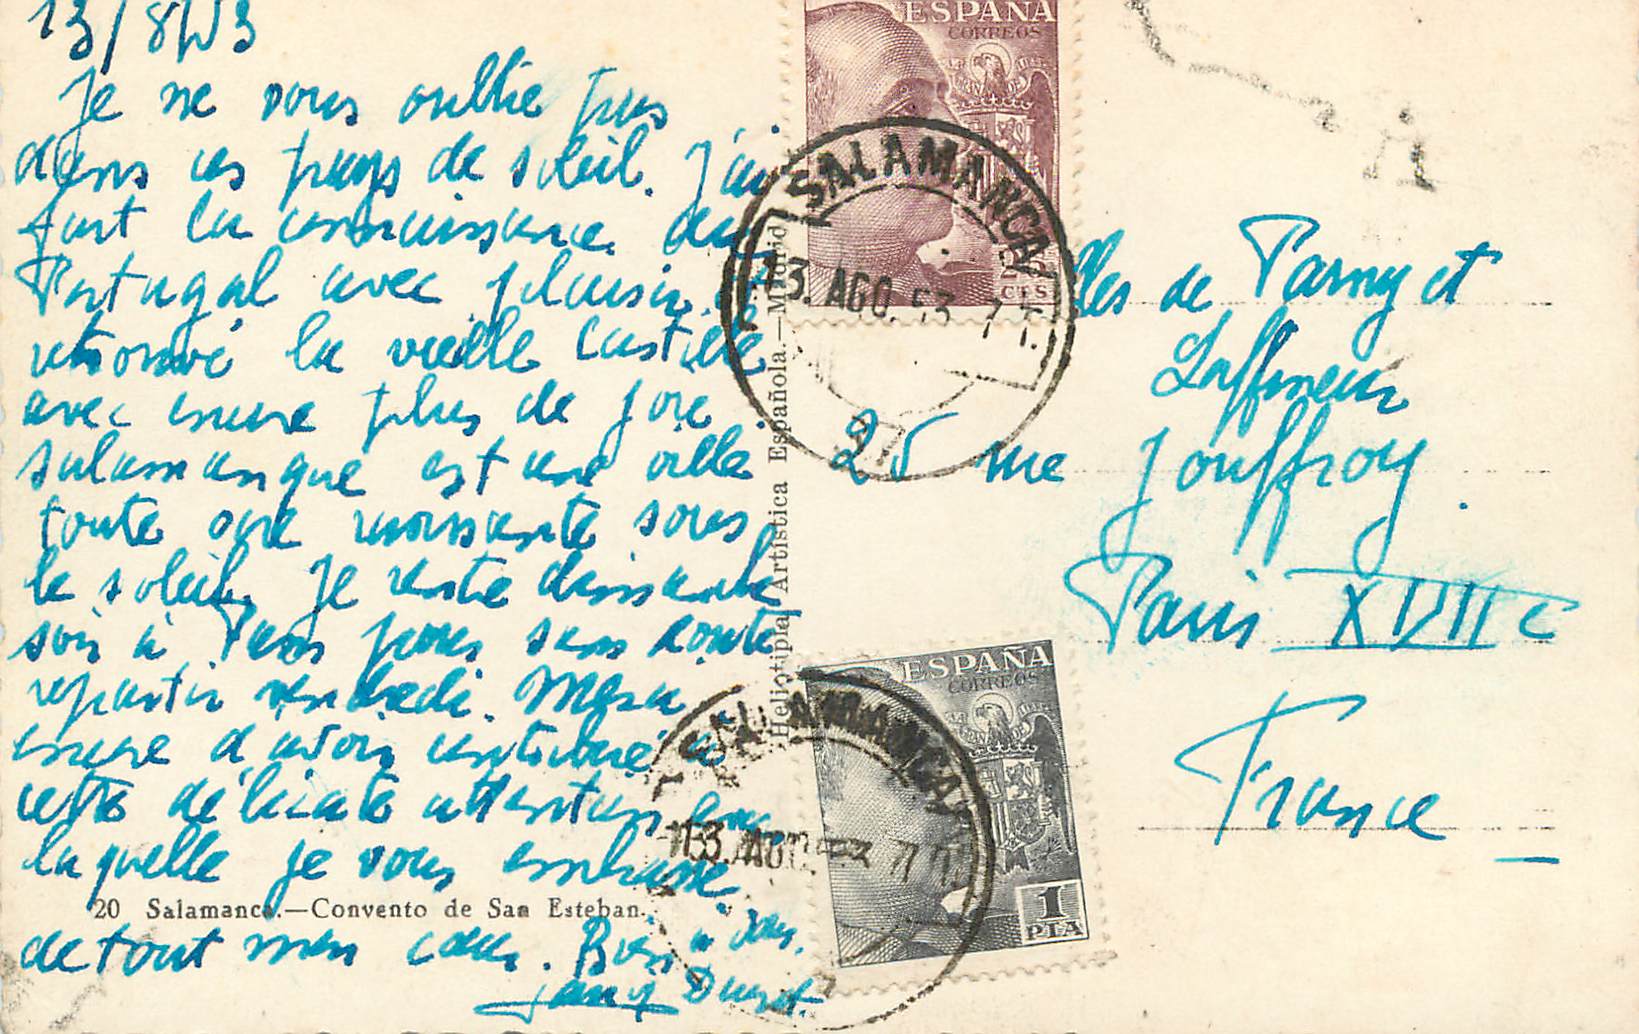 13/8/53
Je ne vous oublie pas
dans ces pays de soleil. J'ai
fait la connaissance du
Portugal avec plaisir et
retrouvé la vieille Castille
avec encore plus de joie
Salamanque est une ville
toute ore sous
le soleil. Je reste
soir à Paris pour sans doute
repartir vendredi. Merci
encore d'avoir contribué à
cette délicate attention
laquelle je vous embrasse
de tout mon cœur. Bien à vous.
Jany
20 Salamanca.—Convento de San Esteban.
Heliotipia Artística Española.—Madrid
ESPAÑA
CORREOS
CTS
SALAMANCA
13.AGO.53.7T.
lles de Parny et
Laffineur
25 rue Jouffroy.
Paris XVIIe
France
ESPAÑA
CORREOS
1
PTA
SALAMANCA
13.AGO.53